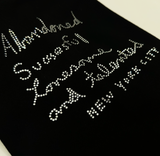 Abandoned
Successful
Lonesome
and talented
NEW YORK CITY